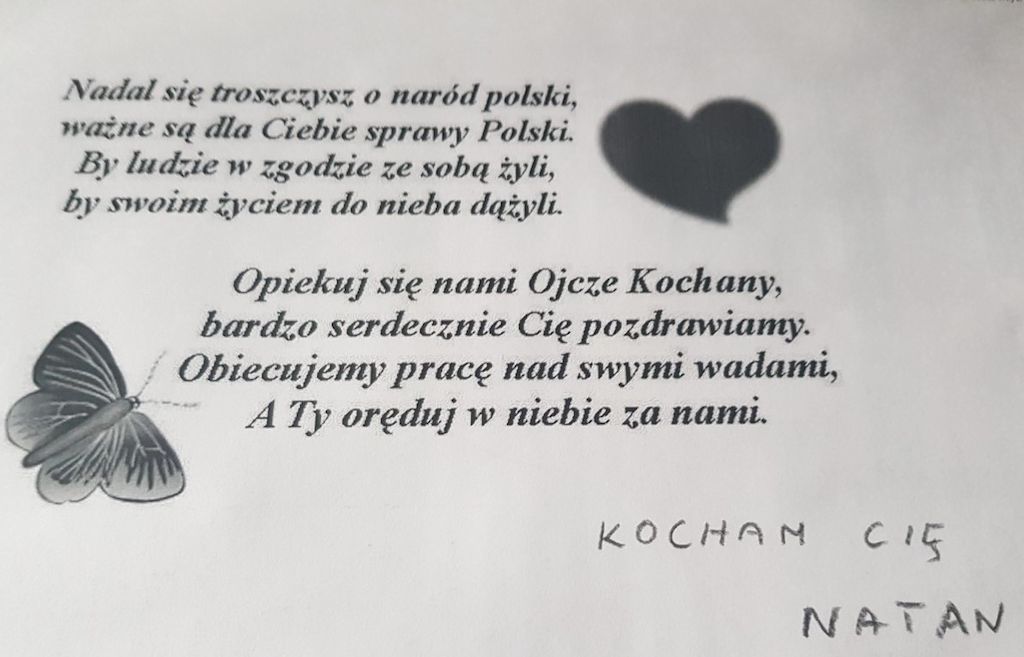 Nadal się troszczysz o naród polski,
ważne są dla Ciebie sprawy Polski.
By ludzie w zgodzie ze sobą żyli,
by swoim życiem do nieba dążyli.
Opiekuj się nami Ojcze Kochany,
bardzo serdecznie Cię pozdrawiamy.
Obiecujemy pracę nad swymi wadami,
A Ty oręduj w niebie za nami.
KOCHAM CIĘ
NATAN